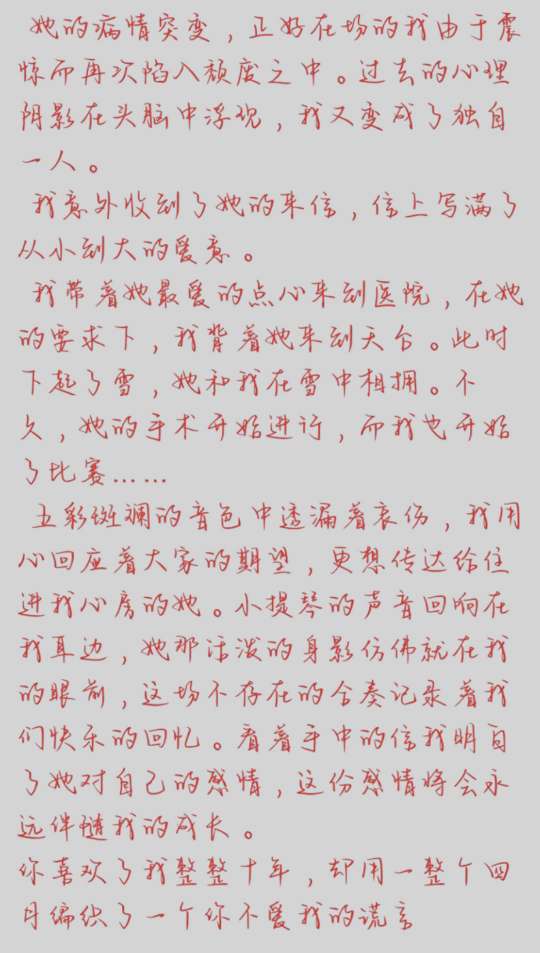 她的病情突变，正好在场的我由于震
惊而再次陷入颓废之中。过去的心理
阴影在头脑中浮现，我又变成了独自
一人。
我意外收到了她的来信，信上写满了
从小到大的爱意。
我带着她最爱的点心来到医院，在她
的要求下，我背着她来到天台。此时
下起了雪，她和我在雪中相拥。不
久，她的手术开始进行，而我也开始
了比赛……
五彩斑斓的音色中透漏着哀伤，我用
心回应着大家的期望，更想传达给住
进我心房的她。小提琴的声音回响在
我耳边，她那活泼的身影仿佛就在我
的眼前，这场不存在的合奏记录着我
们快乐的回忆。看着手中的信我明白
了她对自己的感情，这份感情将会永
远伴随我的成长。
你喜欢了我整整十年，却用一整个四
月编织了一个你不爱我的谎言